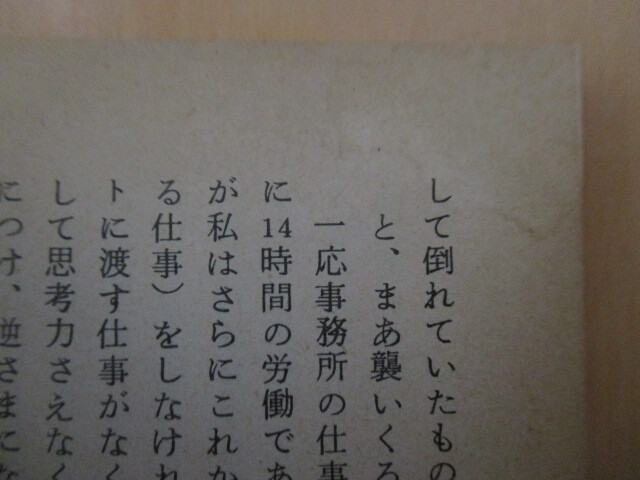 して倒れていたもの
と、まあ襲いくろ
一応事務所の仕事
に14時間の労働であ
が私はさらにこれか
る仕事）をしなけれ
トに渡す仕事がなく
して思考力さえなく
につけ、逆さまにな